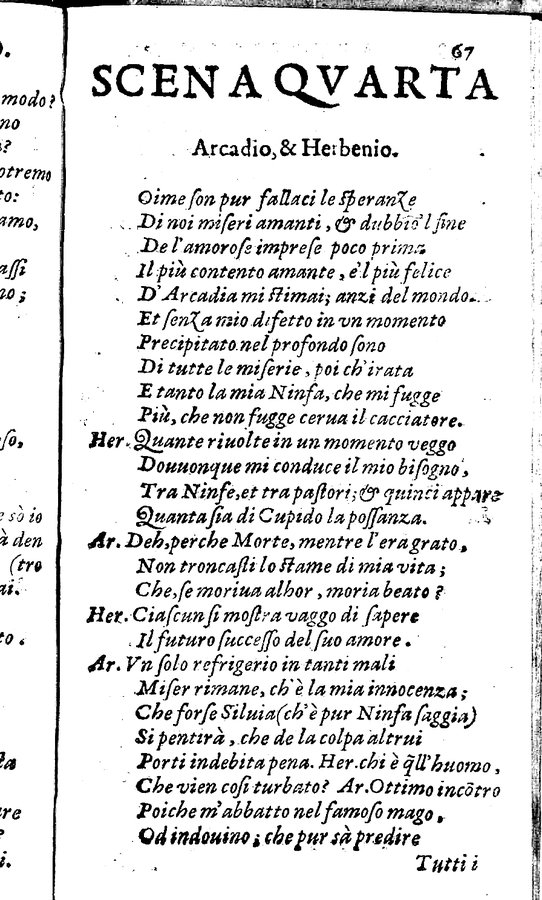 67
SCENA QVARTA
Arcadio, & Herbenio.
Oime ſon pur fallaci le ſperanze
Di noi miſeri amanti, & dubbio'l fine
De l'amoroſe impreſe poco prima
Il più contento amante, e'l più felice
D'Arcadia mi ſtimai; anzi del mondo.
Et ſenza mio difetto in vn momento
Precipitato nel profondo ſono
Di tutte le miſerie, poi ch'irata
E tanto la mia Ninfa, che mi fugge
Più, che non fugge cerua il cacciatore.
Her. Quante riuolte in un momento veggo
Douuonque mi conduce il mio biſogno,
Tra Ninfe, et tra paſtori; & quinci appare
Quanta ſia di Cupido la poſſanza.
Ar. Deh, perche Morte, mentre l'era grato,
Non troncaſti lo ſtame di mia vita;
Che, ſe moriua alhor, moria beato?
Her. Ciaſcun ſi moſtra vaggo di ſapere
Il futuro ſucceſſo del ſuo amore.
Ar. Vn ſolo refrigerio in tanti mali
Miſer rimane, ch'è la mia innocenza;
Che forſe Siluia (ch'è pur Ninfa ſaggia)
Si pentirà, che de la colpa altrui
Porti indebita pena. Her. chi è q̃ll'huomo,
Che vien coſi turbato? Ar. Ottimo incõtro
Poiche m'abbatto nel famoſo mago,
Od indouino; che pur sà predire
Tutti i
modo?
no
?
otremo
to:
amo,
aſſi
no;
ſo,
e sò io
à den
(tro
ai.
to.
ta
re
?
i.